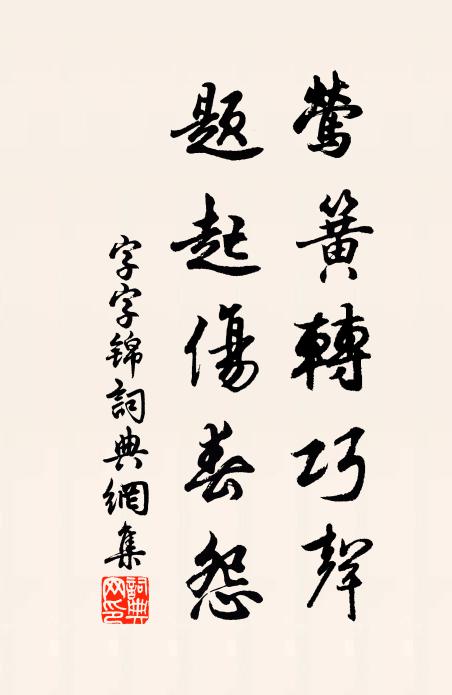 鶯簧轉巧聲
題起傷春怨
字字锦詞典網集
詞典网印